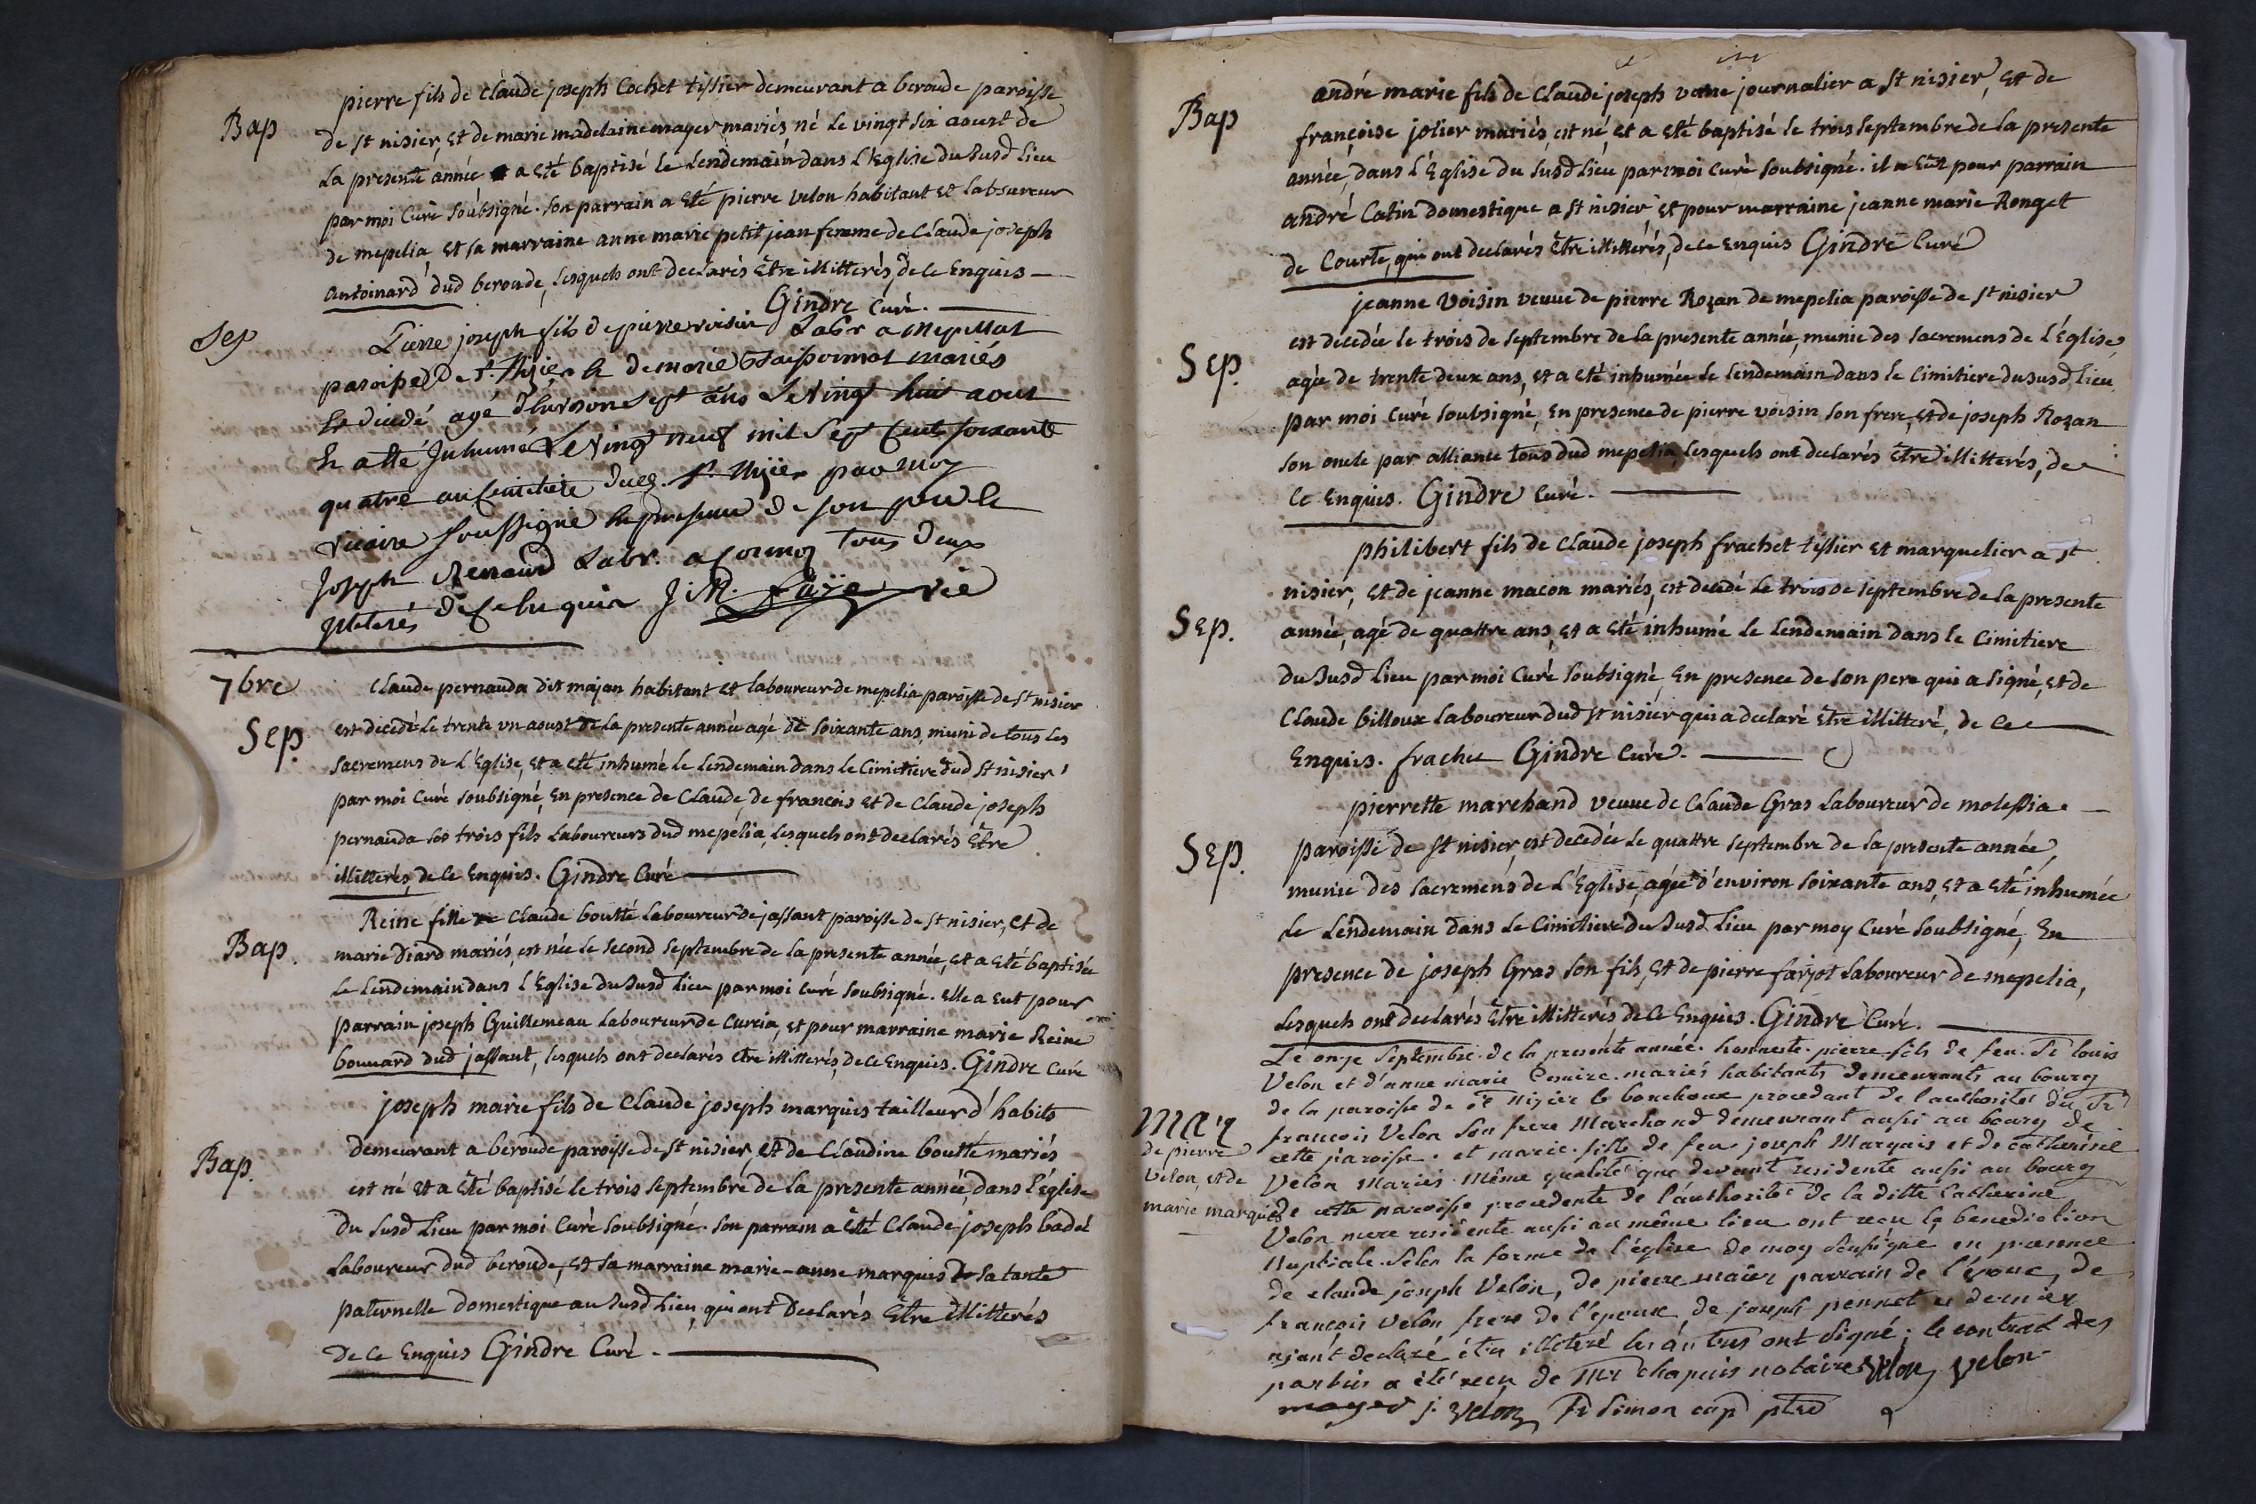 Bap
pierre fils de claude joseph Cochet tissier demeurant a beroude paroisse
de st nisier, et de marie madelaine mayer mariés né le vingt six aoust de
la presente année a eté baptisé le lendemain dans l'Eglise du susd lieu
par moi Curé soubsigné. son parrain a eté pierre velon habitant et laboureur
de mepelia, et sa marraine anne marie petit jean femme de claude joseph
antoinard dud beroude, lesquels ont declarés être illitterés, de ce Enquis
Gindre curé.
Sep
Pierre joseph fils de pierre voisin Labr a Mepillat
paroisse de St. Nyier & de marie mariés
est decedé agé d'environ sept ans le vingt huit aout
et a été Inhumé le vingt neuf mil sept cent soixante
quatre au cemitiere dud. St. Nyier par moy
vicaire soussigné en presence de son pere &
joseph Renaud Labr. a tous deux
de ce enquis J. M. vic
7bre
Sep.
Claude pernauda dit majan habitant et laboureur de mepelia paroisse de st nisier
est decedé le trente un aoust de la presente année agé de soixante ans, muni de tous les
sacremens de l'Eglise, et a eté inhumé le lendemain dans le Cimitiere dud st nisier
par moi curé soubsigné, En presence de claude, de francois et de claude joseph
pernauda ses trois fils laboureurs dud mepelia, lesquels ont declarés être
illitterés, de ce Enquis. Gindre Curé
Bap.
Reine fille de claude boutté laboureur de jassant paroisse de st nisier, et de
marie diard mariés, est née le second septembre de la presente année, et a eté baptisée
le lendemain dans l'Eglise du susd lieu par moi curé soubsigné. elle a eut pour
parrain joseph Guillemeau laboureur de curcia, et pour marraine marie Reine
bouvard dud jassant, lesquels ont declarés etre illitterés, de ce Enquis. Gindre curé
Bap.
joseph marie fils de claude joseph marquis tailleur d'habits
demeurant a beroude paroisse de st nisier, et de Claudine boutté mariés
est né et a eté baptisé le trois septembre de la presente année, dans l'église
du susd lieu par moi Curé soubsigné. son parrain a eté claude joseph badel
laboureur dud beroude, et sa marraine marie-anne marquis sa tante
paternelle domestique au susd lieu, qui ont declarés être illitterés
de ce Enquis Gindre Curé.
Bap
andré marie fils de claude joseph journalier a st nisier, et de
françoise jolier mariés, est né et a eté baptisé le trois septembre de la presente
année, dans l'Eglise du susd lieu par moi curé soubsigné. il a eut pour parrain
andré Catin domestique a st nisier et pour marraine jeanne marie Ronget
de Courte, qui ont declarés être illitterés, de ce enquis Gindre curé
Sep.
jeanne voisin veuve de pierre Rozan de mepelia paroisse de st nisier
est decedée le trois de septembre de la presente année, munie des sacremens de l'Eglise,
agée de trente deux ans, et a eté inhumée le lendemain dans le Cimitiere du susd lieu
par moi curé soubsigné, En presence de pierre voisin son frere, et de joseph Rozan
son oncle par alliance tous dud mepelia, lesquels ont declarés être illitterés, de
ce Enquis. Gindre curé.
Sep.
philibert fils de claude joseph frachet tissier et marquelier a st
nisier, et de jeanne macon mariés, est decedé le trois de septembre de la presente
année, agé de quattre ans, et a eté inhumé le lendemain dans le Cimitiere
du susd lieu par moi curé soubsigné, En presence de son pere qui a signé, et de
Claude billoux laboureur dud st nisier qui a declaré être illitteré, de ce
Enquis. frachet Gindre Curé.
Sep.
pierrette marchand veuve de claude Gras laboureur de molessia
paroisse de st nisier, est decedée le quattre septembre de la presente année,
munie des sacremens de l'Eglise, agée d'environ soixante ans, et a eté inhumée
le lendemain dans le Cimitiere du susd lieu par moy Curé soubsigné, En
presence de joseph Gras son fils, et de pierre farjot laboureur de mepelia,
lesquels ont declarés être illitterés de ce Enquis. Gindre Curé.
Mar
de pierre
Velon, et de
marie marquis
Le onze septembre de la presente année. honneste pierre fils de feu Sr louis
Velon et d'anne marie mariés habitants demeurants au bourg
de la paroisse de st Nizier le bouchoux procedant de l'authorité du Sr
francois Velon son frere Marchand demeurant aussi au bourg de
cette paroisse. et marie fille de feu joseph Marquis et de catherine
Velon Mariés même qualité que devant residente aussi au bourg
de cette paroisse procedente de l'authorité de la ditte Catherine
Velon mere residente aussi au même lieu ont reçu la benediction
Nuptiale selon la forme de l'église de moy soussigné en presence
de claude joseph Velon, de pierre maier parrain de l'epoux, de
francois Velon frere de l'epoux, de joseph pennet ce dernier
ajant declaré étre illiteré les autres ont signé; le contrat des
parties a été reçu de Mr chapuis notaire Velon velon
mayer j. velon fr simon cap ptre